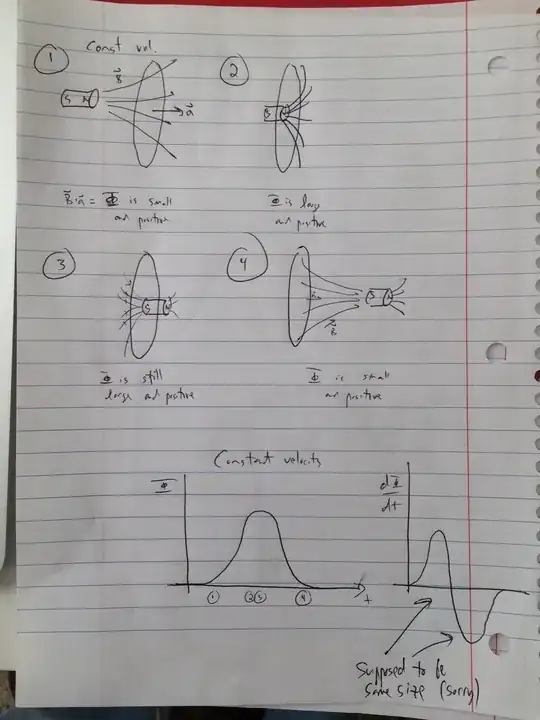 ① Const vel.
B⃗
S N
a⃗
B⃗·a⃗ = Φ is small
and positive
②
S N
Φ is large
and positive
③
S N
Φ is still
large and positive
④
S N
B⃗
Φ is small
and positive
Constant velocity
Φ
① ② ③ ④ t
dΦ
dt
Supposed to be
same size (sorry)